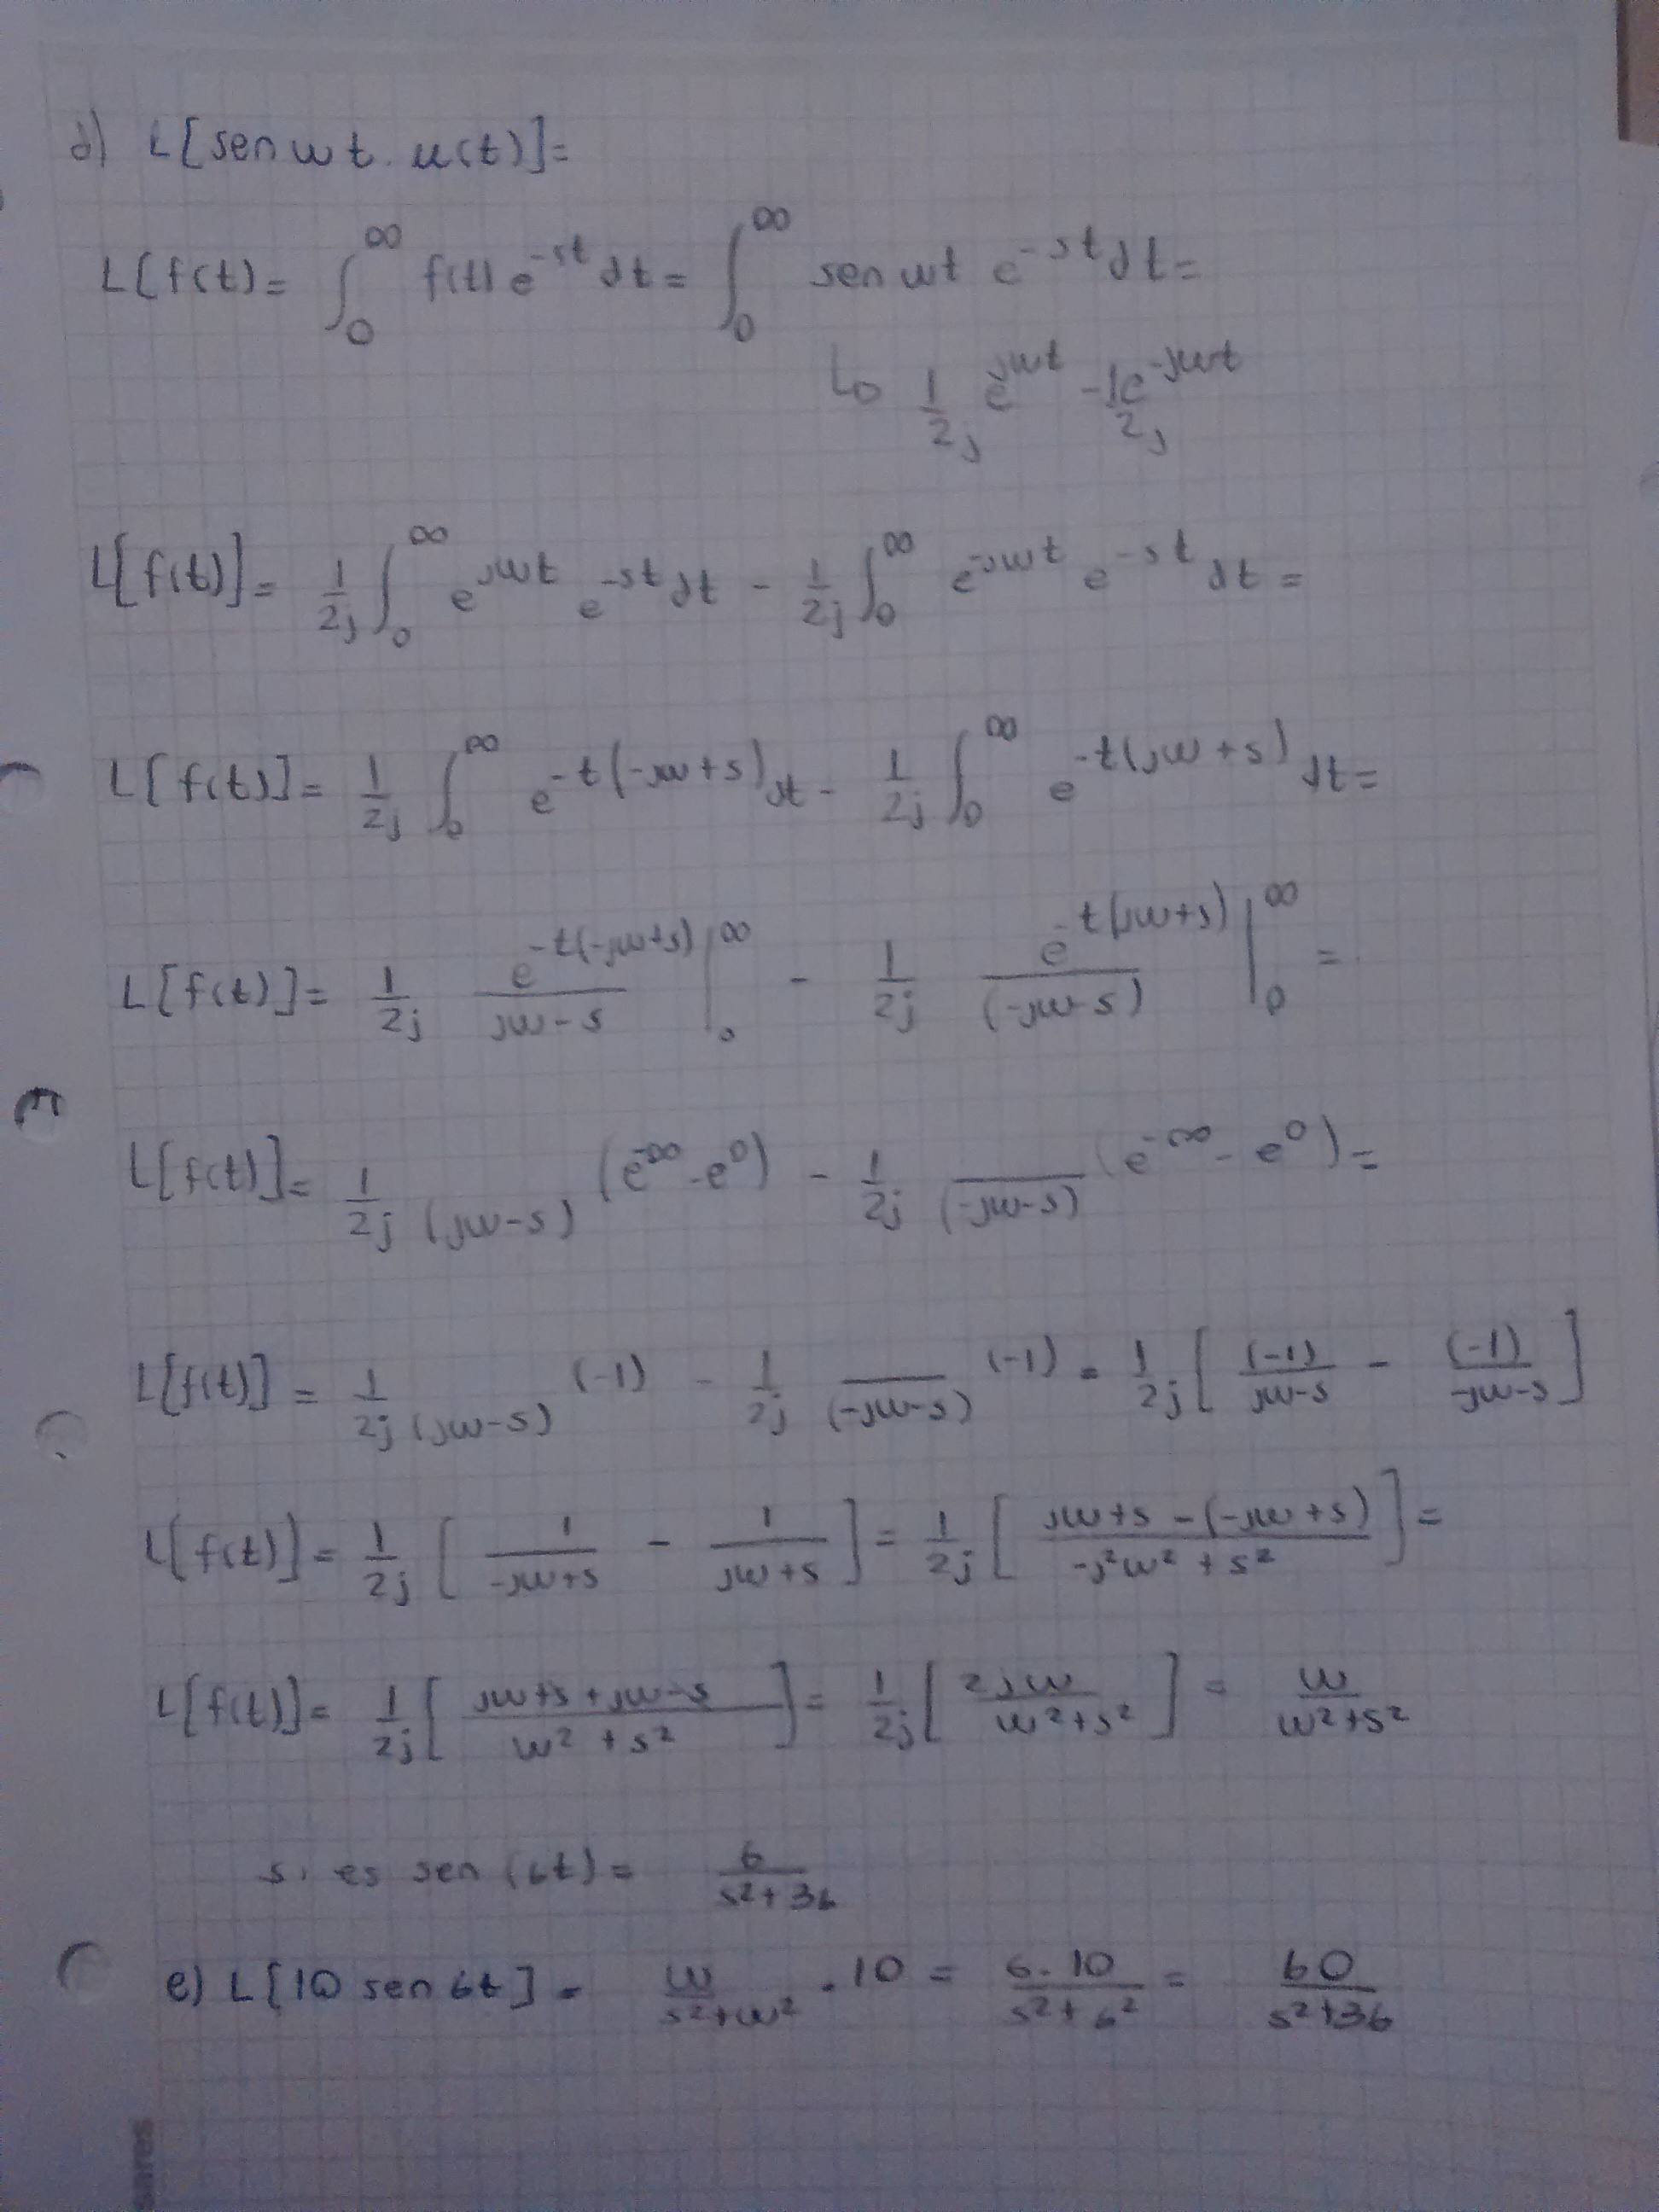 d) L[sen wt. u(t)]=
L[f(t)= ∫₀^∞ f(t) e^-st dt = ∫₀^∞ sen wt e^-st dt =
↳ 1/2j e^jwt - 1/2j e^-jwt
L[f(t)]= 1/2j ∫₀^∞ e^jwt e^-st dt - 1/2j ∫₀^∞ e^-jwt e^-st dt =
L[f(t)]= 1/2j ∫₀^∞ e^-t(-jw+s) dt - 1/2j ∫₀^∞ e^-t(jw+s) dt =
L[f(t)]= 1/2j e^-t(-jw+s)/jw-s |₀^∞ - 1/2j e^-t(jw+s)/(-jw-s) |₀^∞ =
L[f(t)]= 1/2j (jw-s) (e^-∞ - e^0) - 1/2j (-jw-s) (e^-∞ - e^0) =
L[f(t)] = 1/2j (jw-s) (-1) - 1/2j (-jw-s) (-1) = 1/2j [ (-1)/jw-s - (-1)/-jw-s ]
L[f(t)]= 1/2j [ 1/-jw+s - 1/jw+s ] = 1/2j [ jw+s-(-jw+s)/-j²w²+s² ] =
L[f(t)]= 1/2j [ jw+s+jw-s/w²+s² ] = 1/2j [ 2jw/w²+s² ] = w/w²+s²
si es sen (6t) = 6/s²+36
e) L[10 sen 6t] = w/s²+w² . 10 = 6.10/s²+6² = 60/s²+36
sares